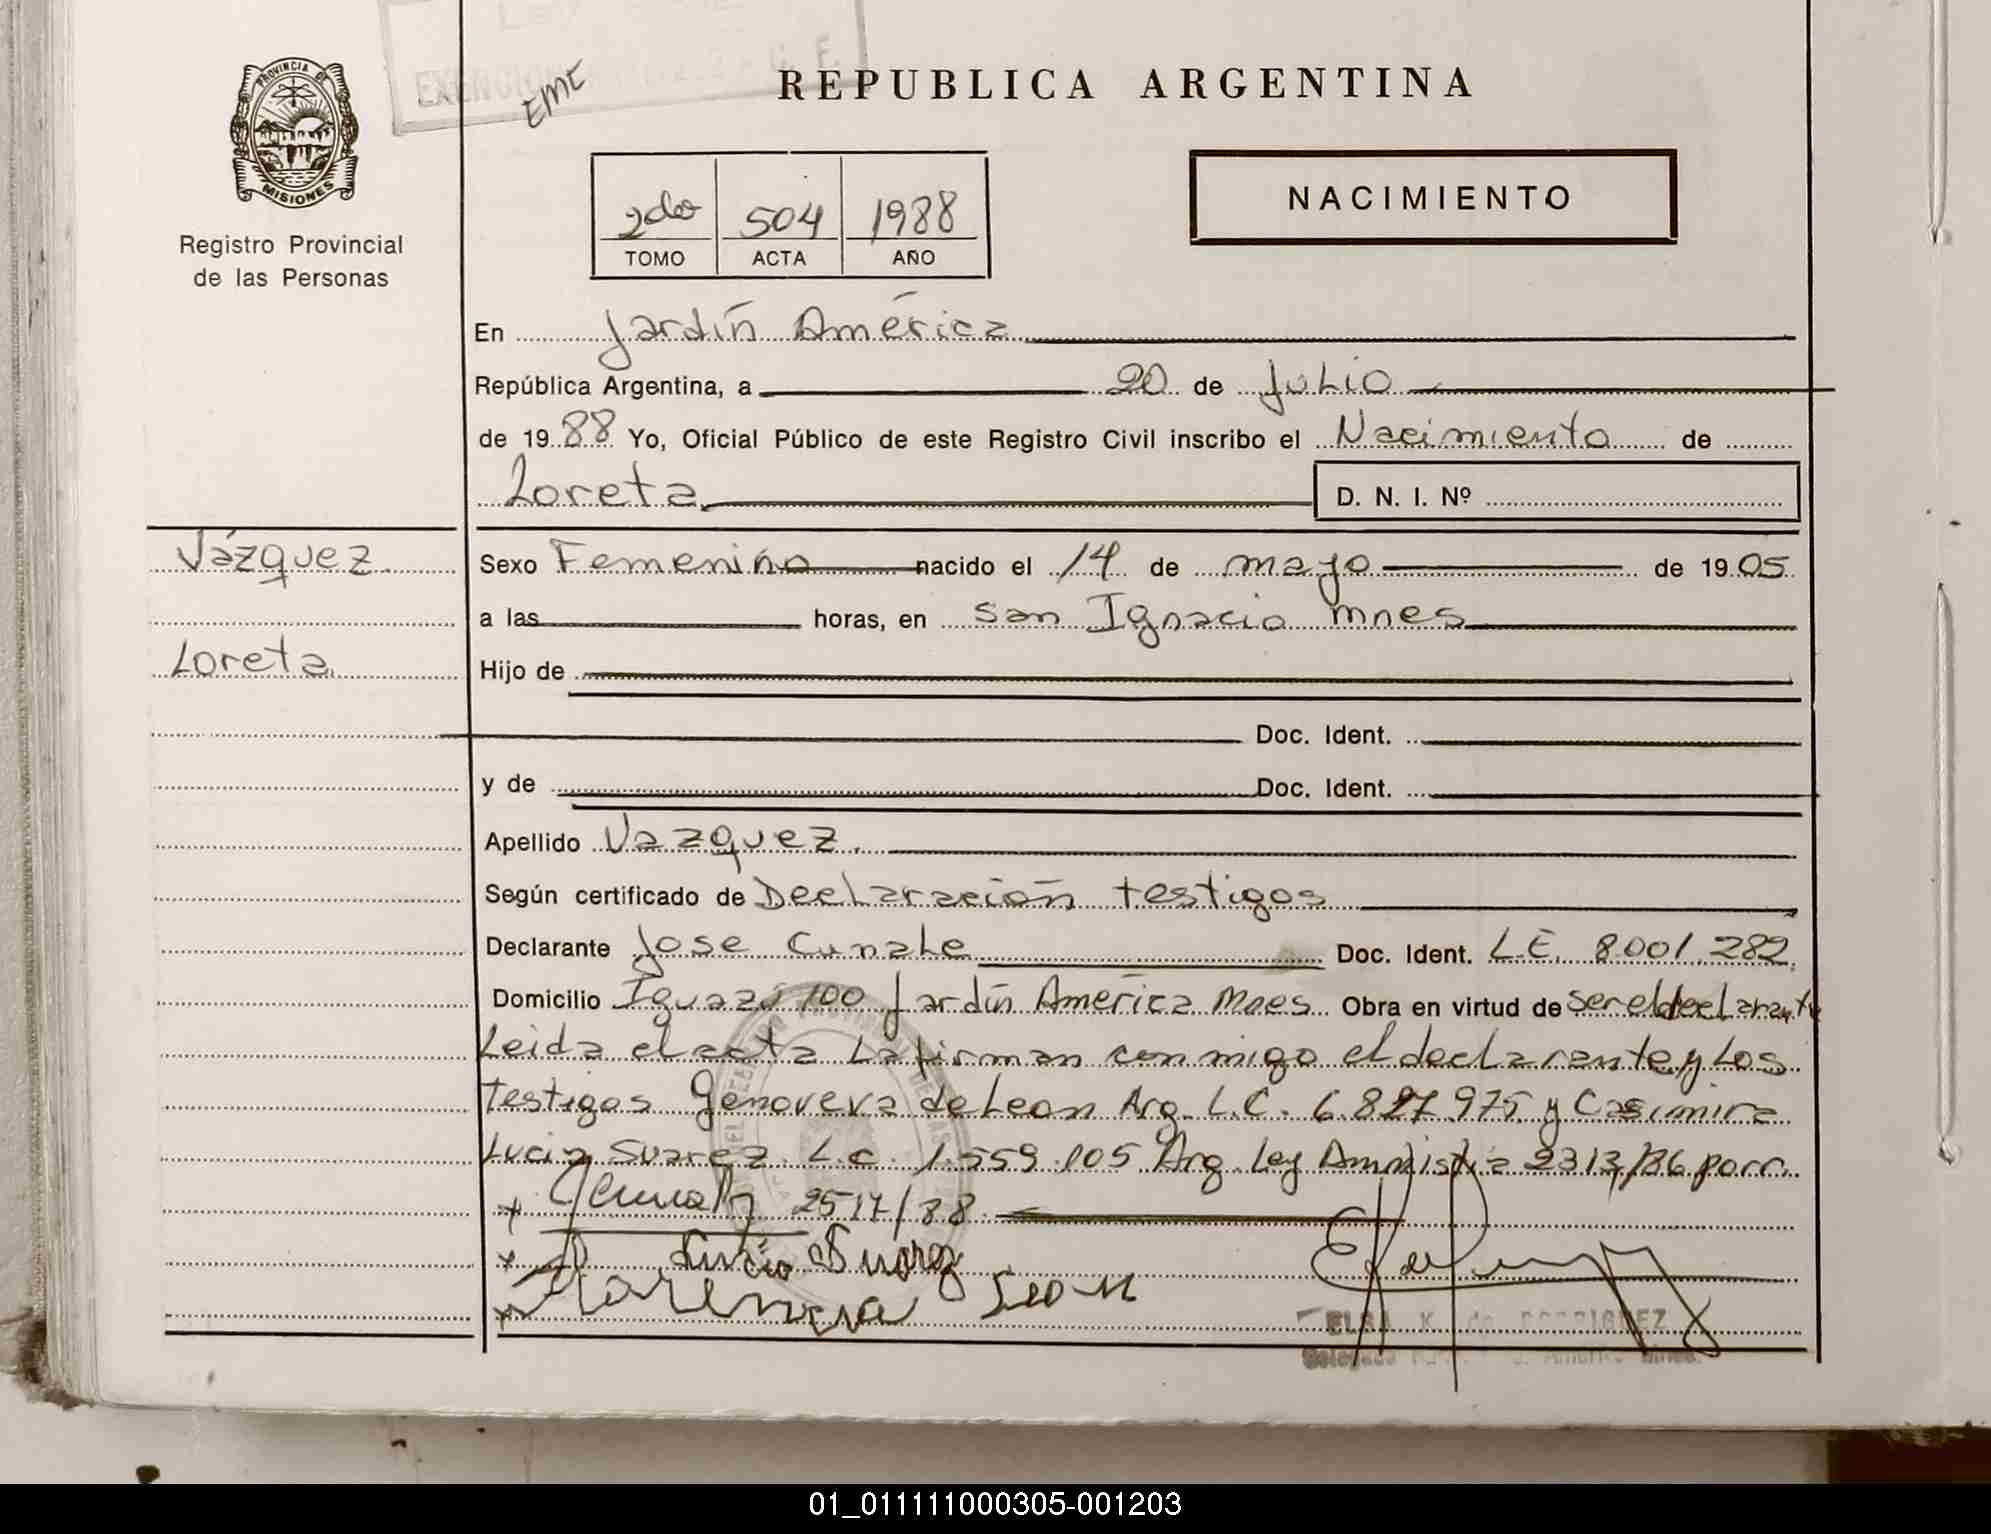 EME
REPUBLICA ARGENTINA
PROVINCIA DE
MISIONES
Registro Provincial
de las Personas
2do 504 1988
TOMO ACTA AÑO
NACIMIENTO
En Jardín América
República Argentina, a 20 de Julio
de 1988 Yo, Oficial Público de este Registro Civil inscribo el Nacimiento de
Loreta D. N. I. Nº
Vázquez
Loreta
Sexo Femenino nacido el 14 de mayo de 1905
a las horas, en San Ignacio Mnes
Hijo de
Doc. Ident.
y de Doc. Ident.
Apellido Vazquez
Según certificado de Declaración testigos
Declarante Jose Cunahe Doc. Ident. L.E. 8.001.282
Domicilio Iguazú 100 Jardín América Mnes Obra en virtud de ser el declarante
Leida el acta la firman conmigo el declarante y los
testigos Genoveva de Leon Arg. L.C. 6.827.975 y Casimira
Lucia Suarez L.C. 1.559.105 Arg. Ley Amnistia 2313/86 porr.
2517/88
Lucia Suarez
Leon
ELSA K. de RODRIGUEZ
01_011111000305-001203